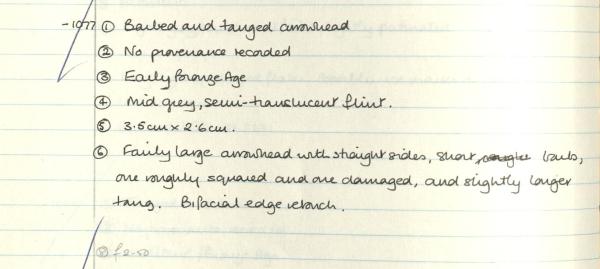 -1077 ① Barbed and tanged arrowhead
② No provenance recorded
③ Early Bronze Age
④ Mid grey, semi-translucent flint.
⑤ 3.5cm x 2.6cm.
⑥ Fairly large arrowhead with straight sides, short, barbs,
one roughly squared and one damaged, and slightly longer
tang. Bifacial edge retouch.
⑧ £2-50